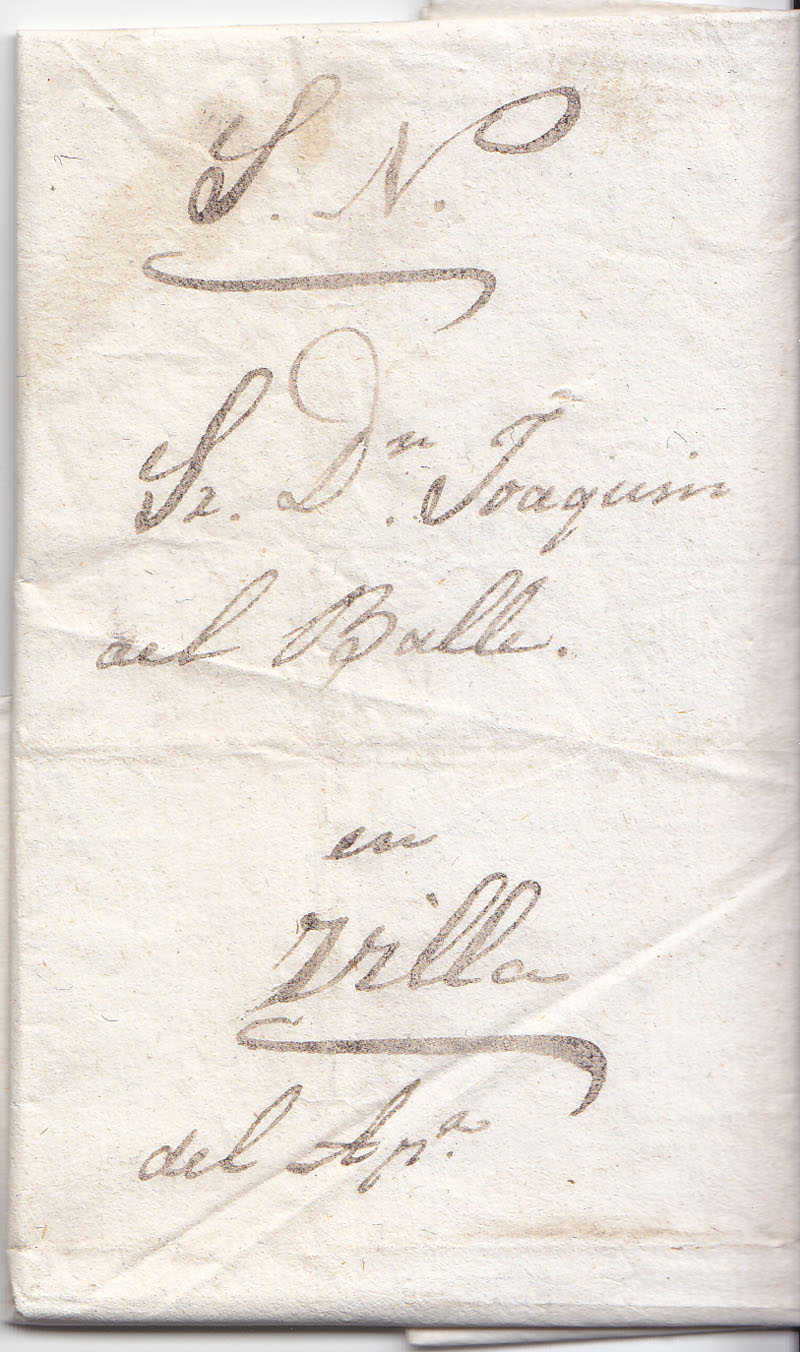 S. N.
Sr. Dn. Joaquin
del Balle.
en
Villa
del